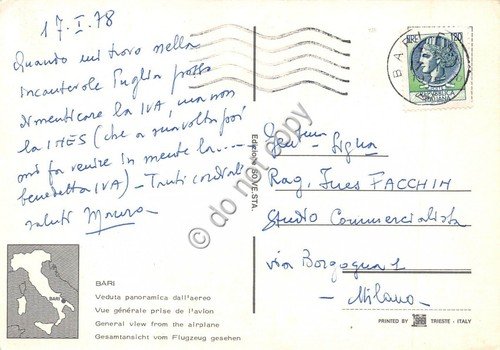 17.I.78
Quando mi trovo nella
incantevole Puglia posso
dimenticare la IVA, ma non
la INES (che a sua volta poi
mi fa venire in mente la....
benedetta IVA) - Tanti cordiali
saluti Mauro
BARI
BARI
Veduta panoramica dall'aereo
Vue générale prise de l'avion
General view from the airplane
Gesamtansicht vom Flugzeug gesehen
Edizione SO.VE.STA.
© do not copy
LIRE 180
BARI
Gent.ma
Sig.na
Rag. Ines FACCHIN
Studio Commercialista
via Borgogna 1
- Milano -
PRINTED BY TRIESTE - ITALY